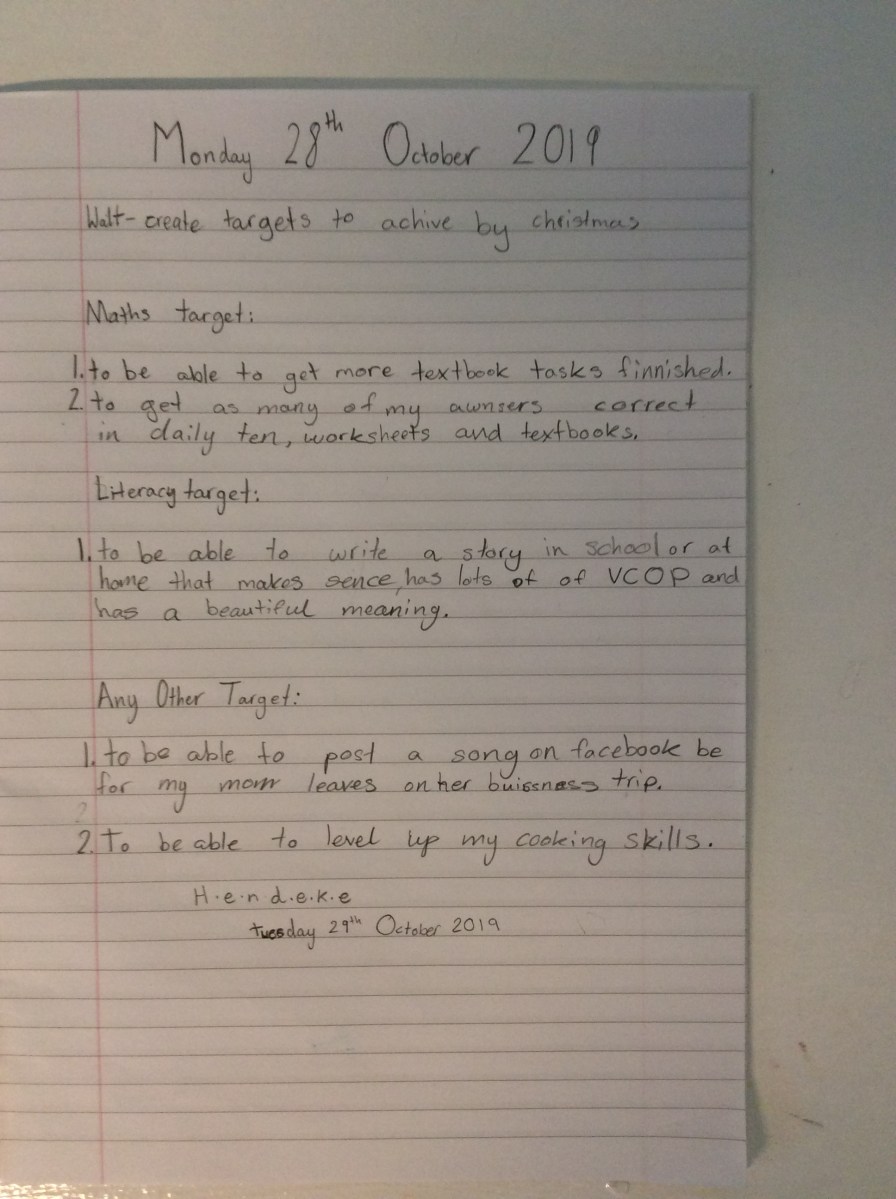 Monday 28th October 2019
Walt- create targets to achive by christmas
Maths target:
1. to be able to get more textbook tasks finnished.
2. to get as many of my awnsers correct
in daily ten, worksheets and textbooks.
Literacy target:
1. to be able to write a story in school or at
home that makes sence, has lots of of VCOP and
has a beautiful meaning.
Any Other Target:
1. to be able to post a song on facebook be
for my mom leaves on her buissness trip.
2
2. To be able to level up my cooking skills.
H.e.n d.e.k.e
tuesday 29th October 2019